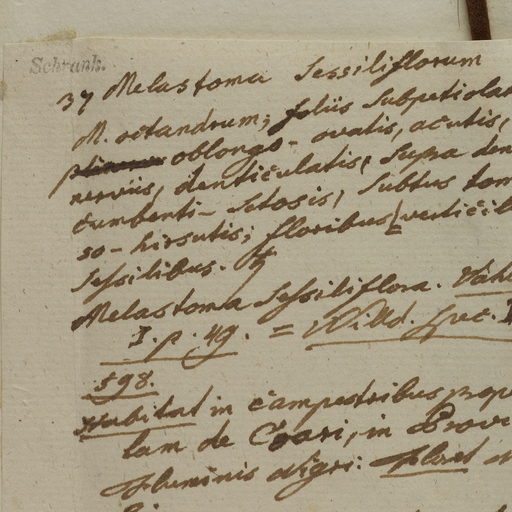 Schrank.
37 Melastoma sessiliflorum
M. octandrum; foliis subpetiolat
oblongo-ovatis, acutis,
nerviis, denticulatis, supra den
cumbenti-setosis, subtus tom
so-hirsutis; floribus verticil
sessilibus. ♄
Melastoma sessiliflora. Vahl
I. p. 49. = Willd. spec. I
598.
Habitat in campestribus prope
lam de Coari, in Provi
Fluminis nigri: Floret